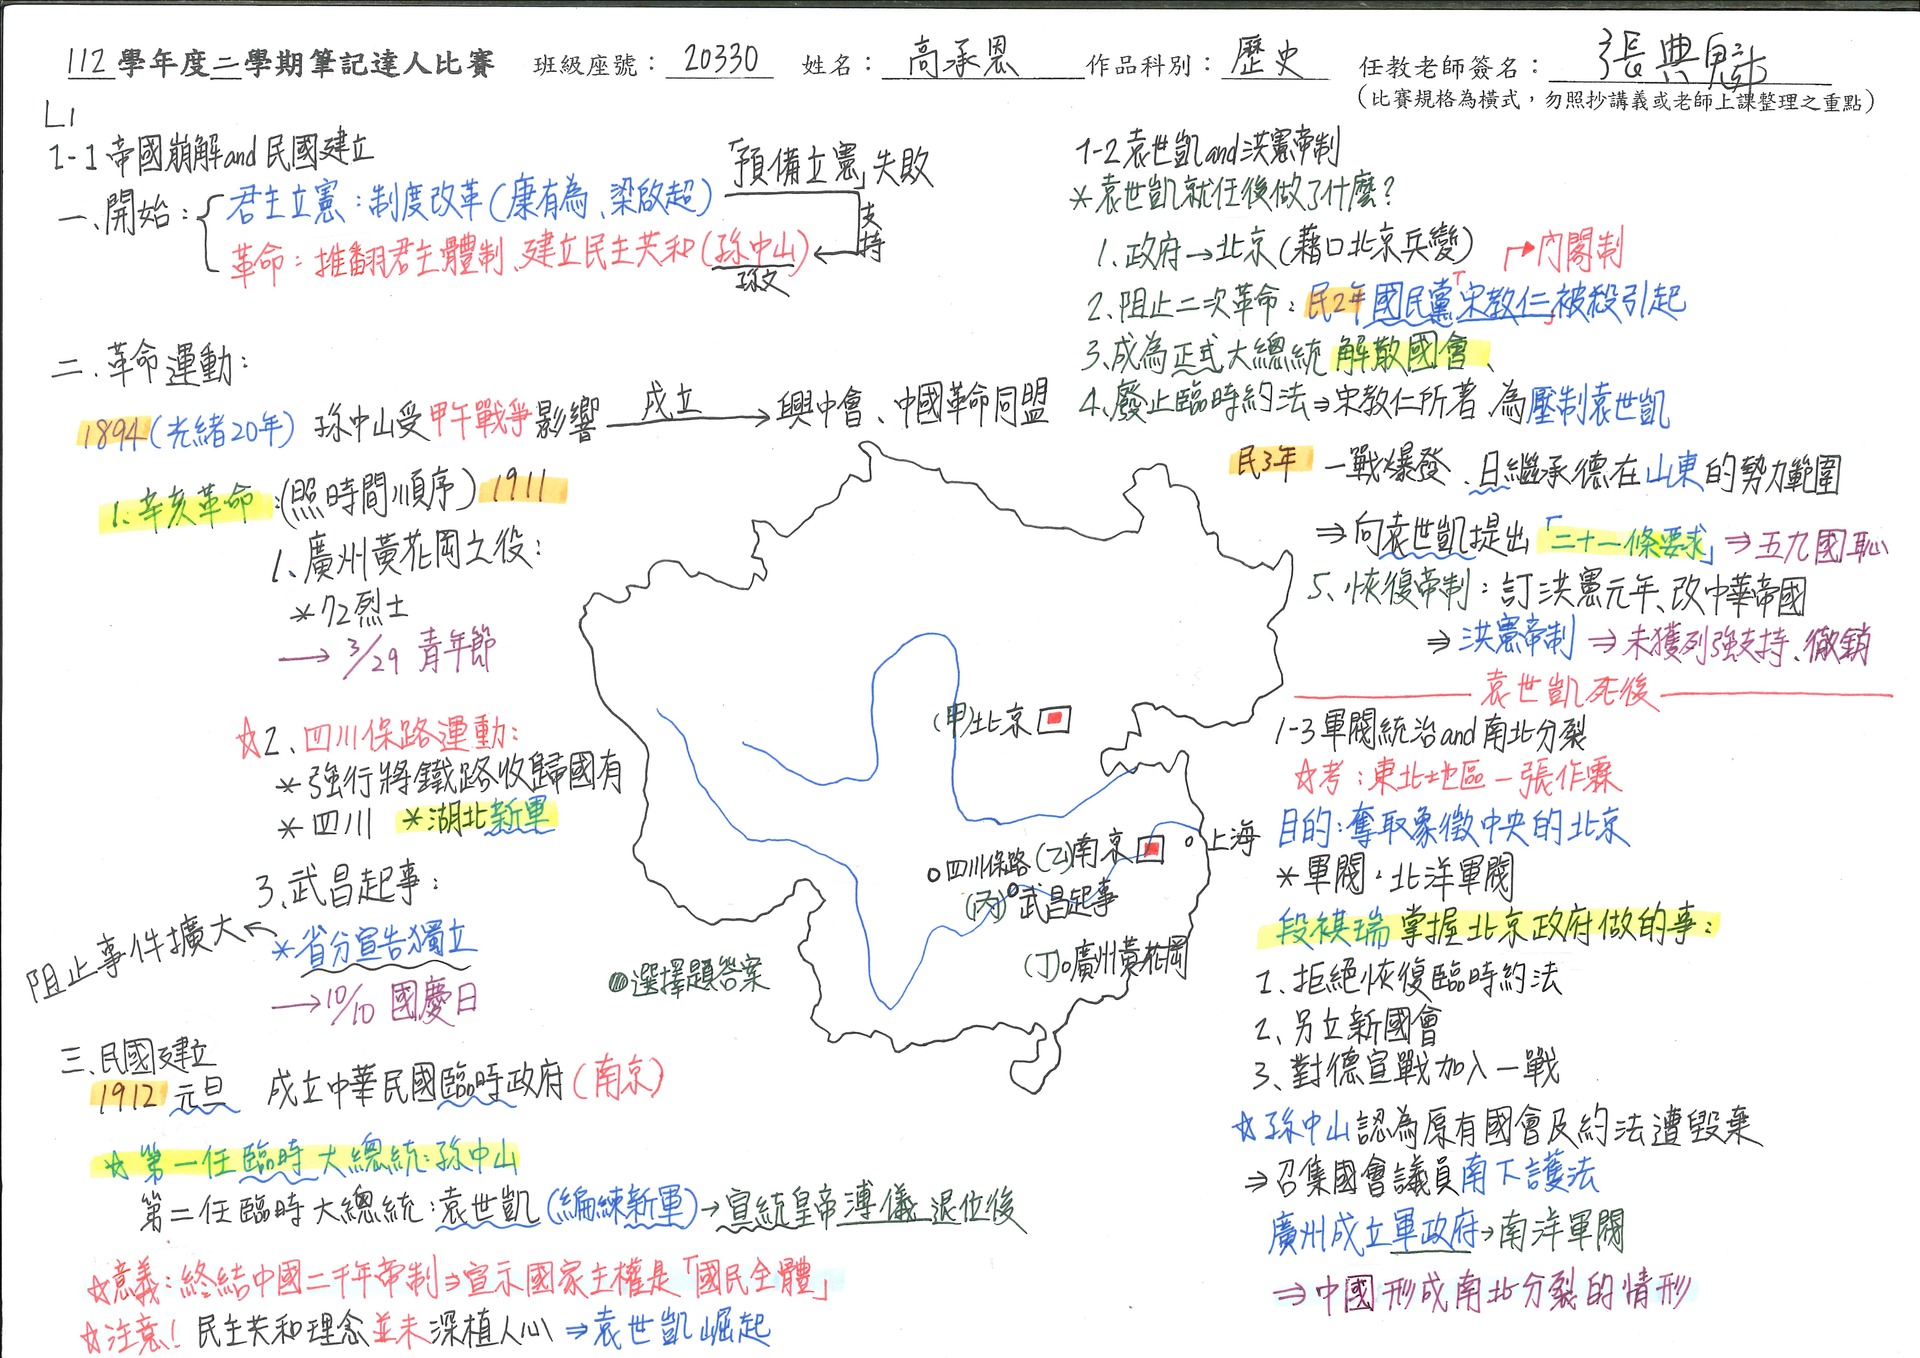 112學年度二學期筆記達人比賽 班級座號：20330 姓名：高承恩 作品科別：歷史 任教老師簽名：張典魁
（比賽規格為橫式，勿照抄講義或老師上課整理之重點）
L1
1-1 帝國崩解and民國建立
「預備立憲」失敗
一、開始：
君主立憲：制度改革(康有為、梁啟超)
支持
革命：推翻君主體制、建立民主共和(孫中山)
孫文
二、革命運動：
1894(光緒20年) 孫中山受甲午戰爭影響 成立→興中會、中國革命同盟
1.辛亥革命:(照時間順序) 1911
1、廣州黃花岡之役：
*72烈士
→3/29 青年節
☆2、四川保路運動：
*強行將鐵路收歸國有
*四川 *湖北新軍
3.武昌起事：
*省分宣告獨立
阻止事件擴大
→10/10 國慶日
三、民國建立
1912 元旦 成立中華民國臨時政府(南京)
☆第一任臨時大總統：孫中山
第二任臨時大總統：袁世凱(編練新軍)→宣統皇帝溥儀退位後
☆意義：終結中國二千年帝制⇒宣示國家主權是「國民全體」
☆注意! 民主共和理念並未深植人心⇒袁世凱崛起
(甲)北京
四川保路 (乙)南京
上海
(丙)武昌起事
(丁)廣州黃花岡
選擇題答案
1-2袁世凱and洪憲帝制
*袁世凱就任後做了什麼？
1.政府→北京(藉口北京兵變)
→內閣制
2.阻止二次革命：民2年國民黨「宋教仁」被殺引起
3.成為正式大總統 解散國會、
4.廢止臨時約法⇒宋教仁所著、為壓制袁世凱
民3年 一戰爆發、日繼承德在山東的勢力範圍
⇒向袁世凱提出「二十一條要求」⇒五九國恥
5、恢復帝制：訂洪憲元年、改中華帝國
⇒洪憲帝制⇒未獲列強支持、撤銷
袁世凱死後
1-3軍閥統治and南北分裂
☆考：東北地區-張作霖
目的：奪取象徵中央的北京
*軍閥：北洋軍閥
段祺瑞掌握北京政府做的事：
1.拒絕恢復臨時約法
2.另立新國會
3、對德宣戰加入一戰
☆孫中山認為原有國會及約法遭毀棄
⇒召集國會議員南下護法
廣州成立軍政府→南洋軍閥
⇒中國形成南北分裂的情形